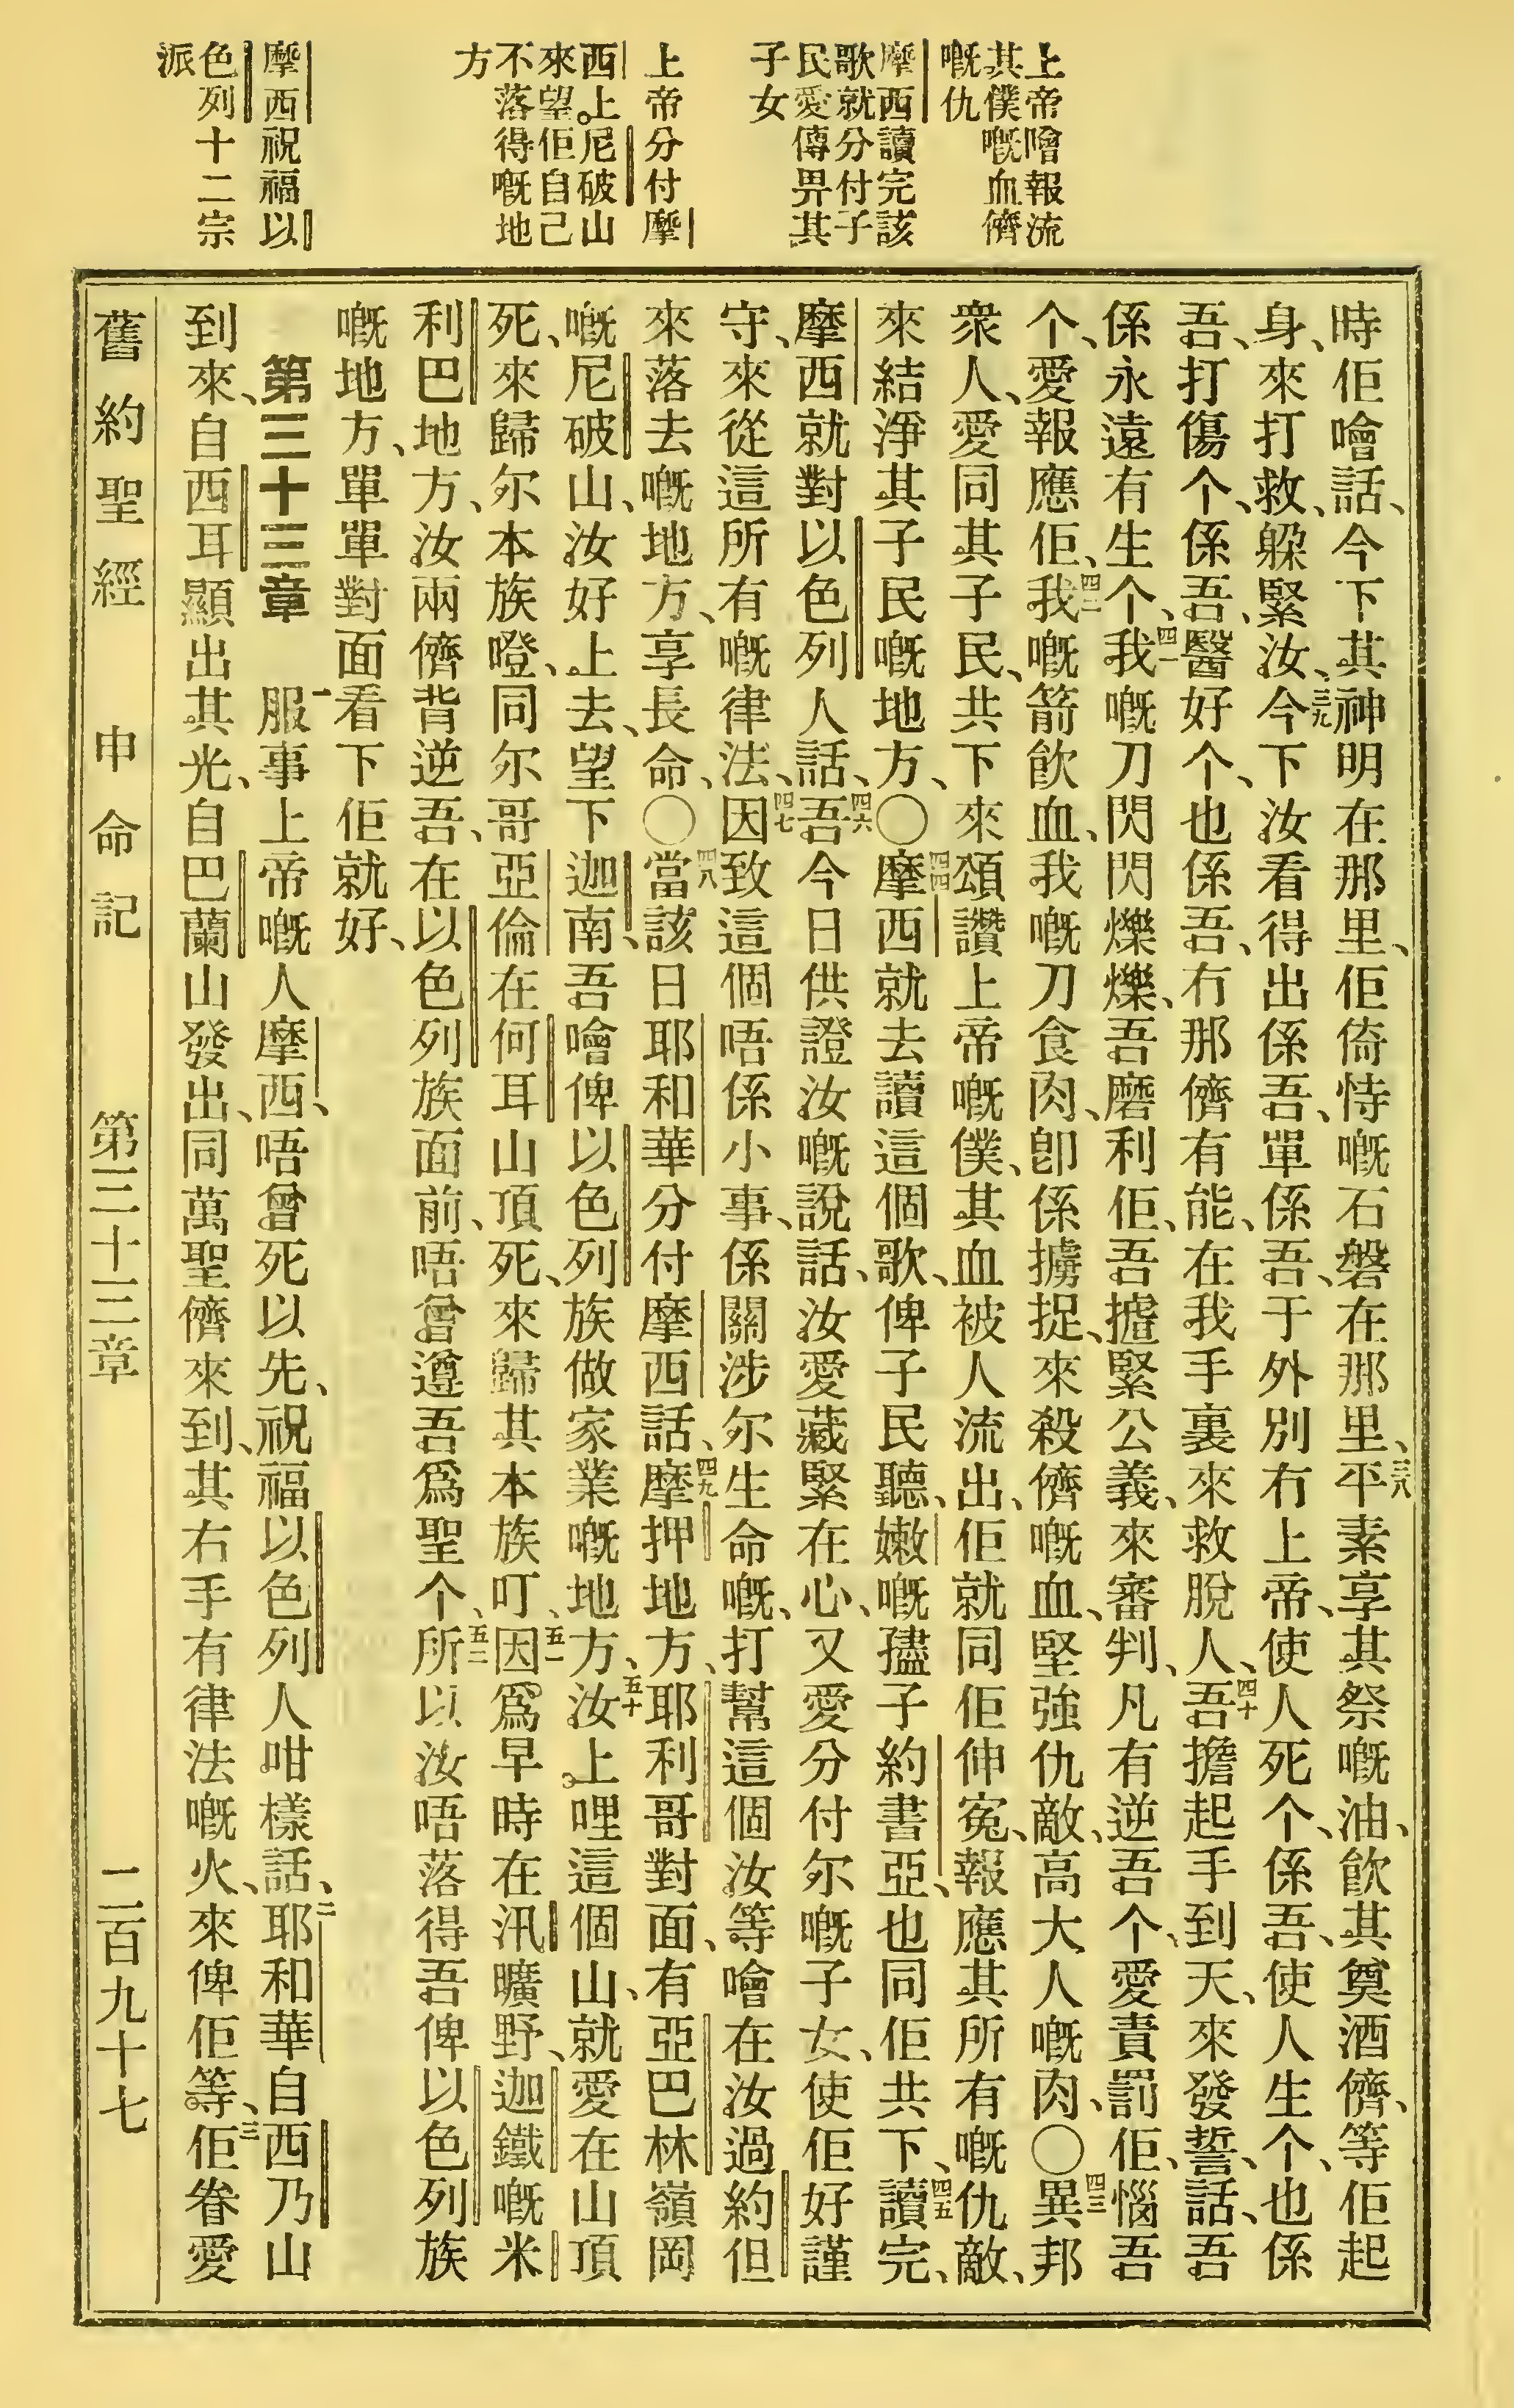 上帝噲報流
其僕嘅血儕
嘅仇
摩西讀完該
歌就分付子
民愛傳畀其
子女
上帝分付摩
西上尼破山
來望佢自己
不落得嘅地
方
摩西祝福以
色列十二宗
派
時佢噲話、今下其神明在那里、佢倚恃嘅石磐在那里、三八平素享其祭嘅油、飮其奠酒儕、等佢起
身、來打救、躱緊汝、三九今下汝看得出係吾、單係吾、于外別冇上帝、使人死个、係吾、使人生个、也係
吾、打傷个、係吾、醫好个、也係吾、冇那儕有能、在我手裏來救脫人、四十吾擔起手到天、來發誓、話、吾
係永遠有生个、四一我嘅刀閃閃爍爍、吾磨利佢、吾攎緊公義、來審判、凡有逆吾个、愛責罰佢、惱吾
个、愛報應佢、四二我嘅箭飮血、我嘅刀食肉、卽係擄捉、來殺儕嘅血、堅強仇敵、高大人嘅肉、〇四三異邦
衆人、愛同其子民、共下來頌讚上帝嘅僕、其血被人流出、佢就同佢伸寃、報應其所有嘅仇敵、
來結淨其子民嘅地方、〇四四摩西就去讀這個歌、俾子民聽、嫩嘅孻子約書亞、也同佢共下、四五讀完、
摩西就對以色列人話、四六吾今日供證汝嘅說話、汝愛藏緊在心、又愛分付尔嘅子女、使佢好謹
守、來從這所有嘅律法、四七因致這個唔係小事、係關涉尔生命嘅、打幫這個汝等噲在汝過約但
來落去嘅地方、享長命、〇四八當該日耶和華分付摩西話、四九摩押地方、耶利哥對面、有亞巴林嶺岡
嘅尼破山、汝好上去、望下迦南、吾噲俾以色列族做家業嘅地方、五十汝上哩這個山、就愛在山頂
死、來歸尔本族噔、同尔哥亞倫在何耳山頂死、來歸其本族叮、五一因爲早時在汛曠野、迦鐵嘅米
利巴地方、汝兩儕背逆吾、在以色列族面前、唔曾遵吾爲聖个、五二所以汝唔落得吾俾以色列族
嘅地方、單單對面看下佢就好、
第三十三章　一服事上帝嘅人摩西、唔曾死以先、祝福以色列人咁樣話、二耶和華自西乃山
到來、自西耳顯出其光、自巴蘭山發出、同萬聖儕來到、其右手有律法嘅火、來俾佢等、三佢眷愛
舊約聖經　申命記　第三十三章　二百九十七